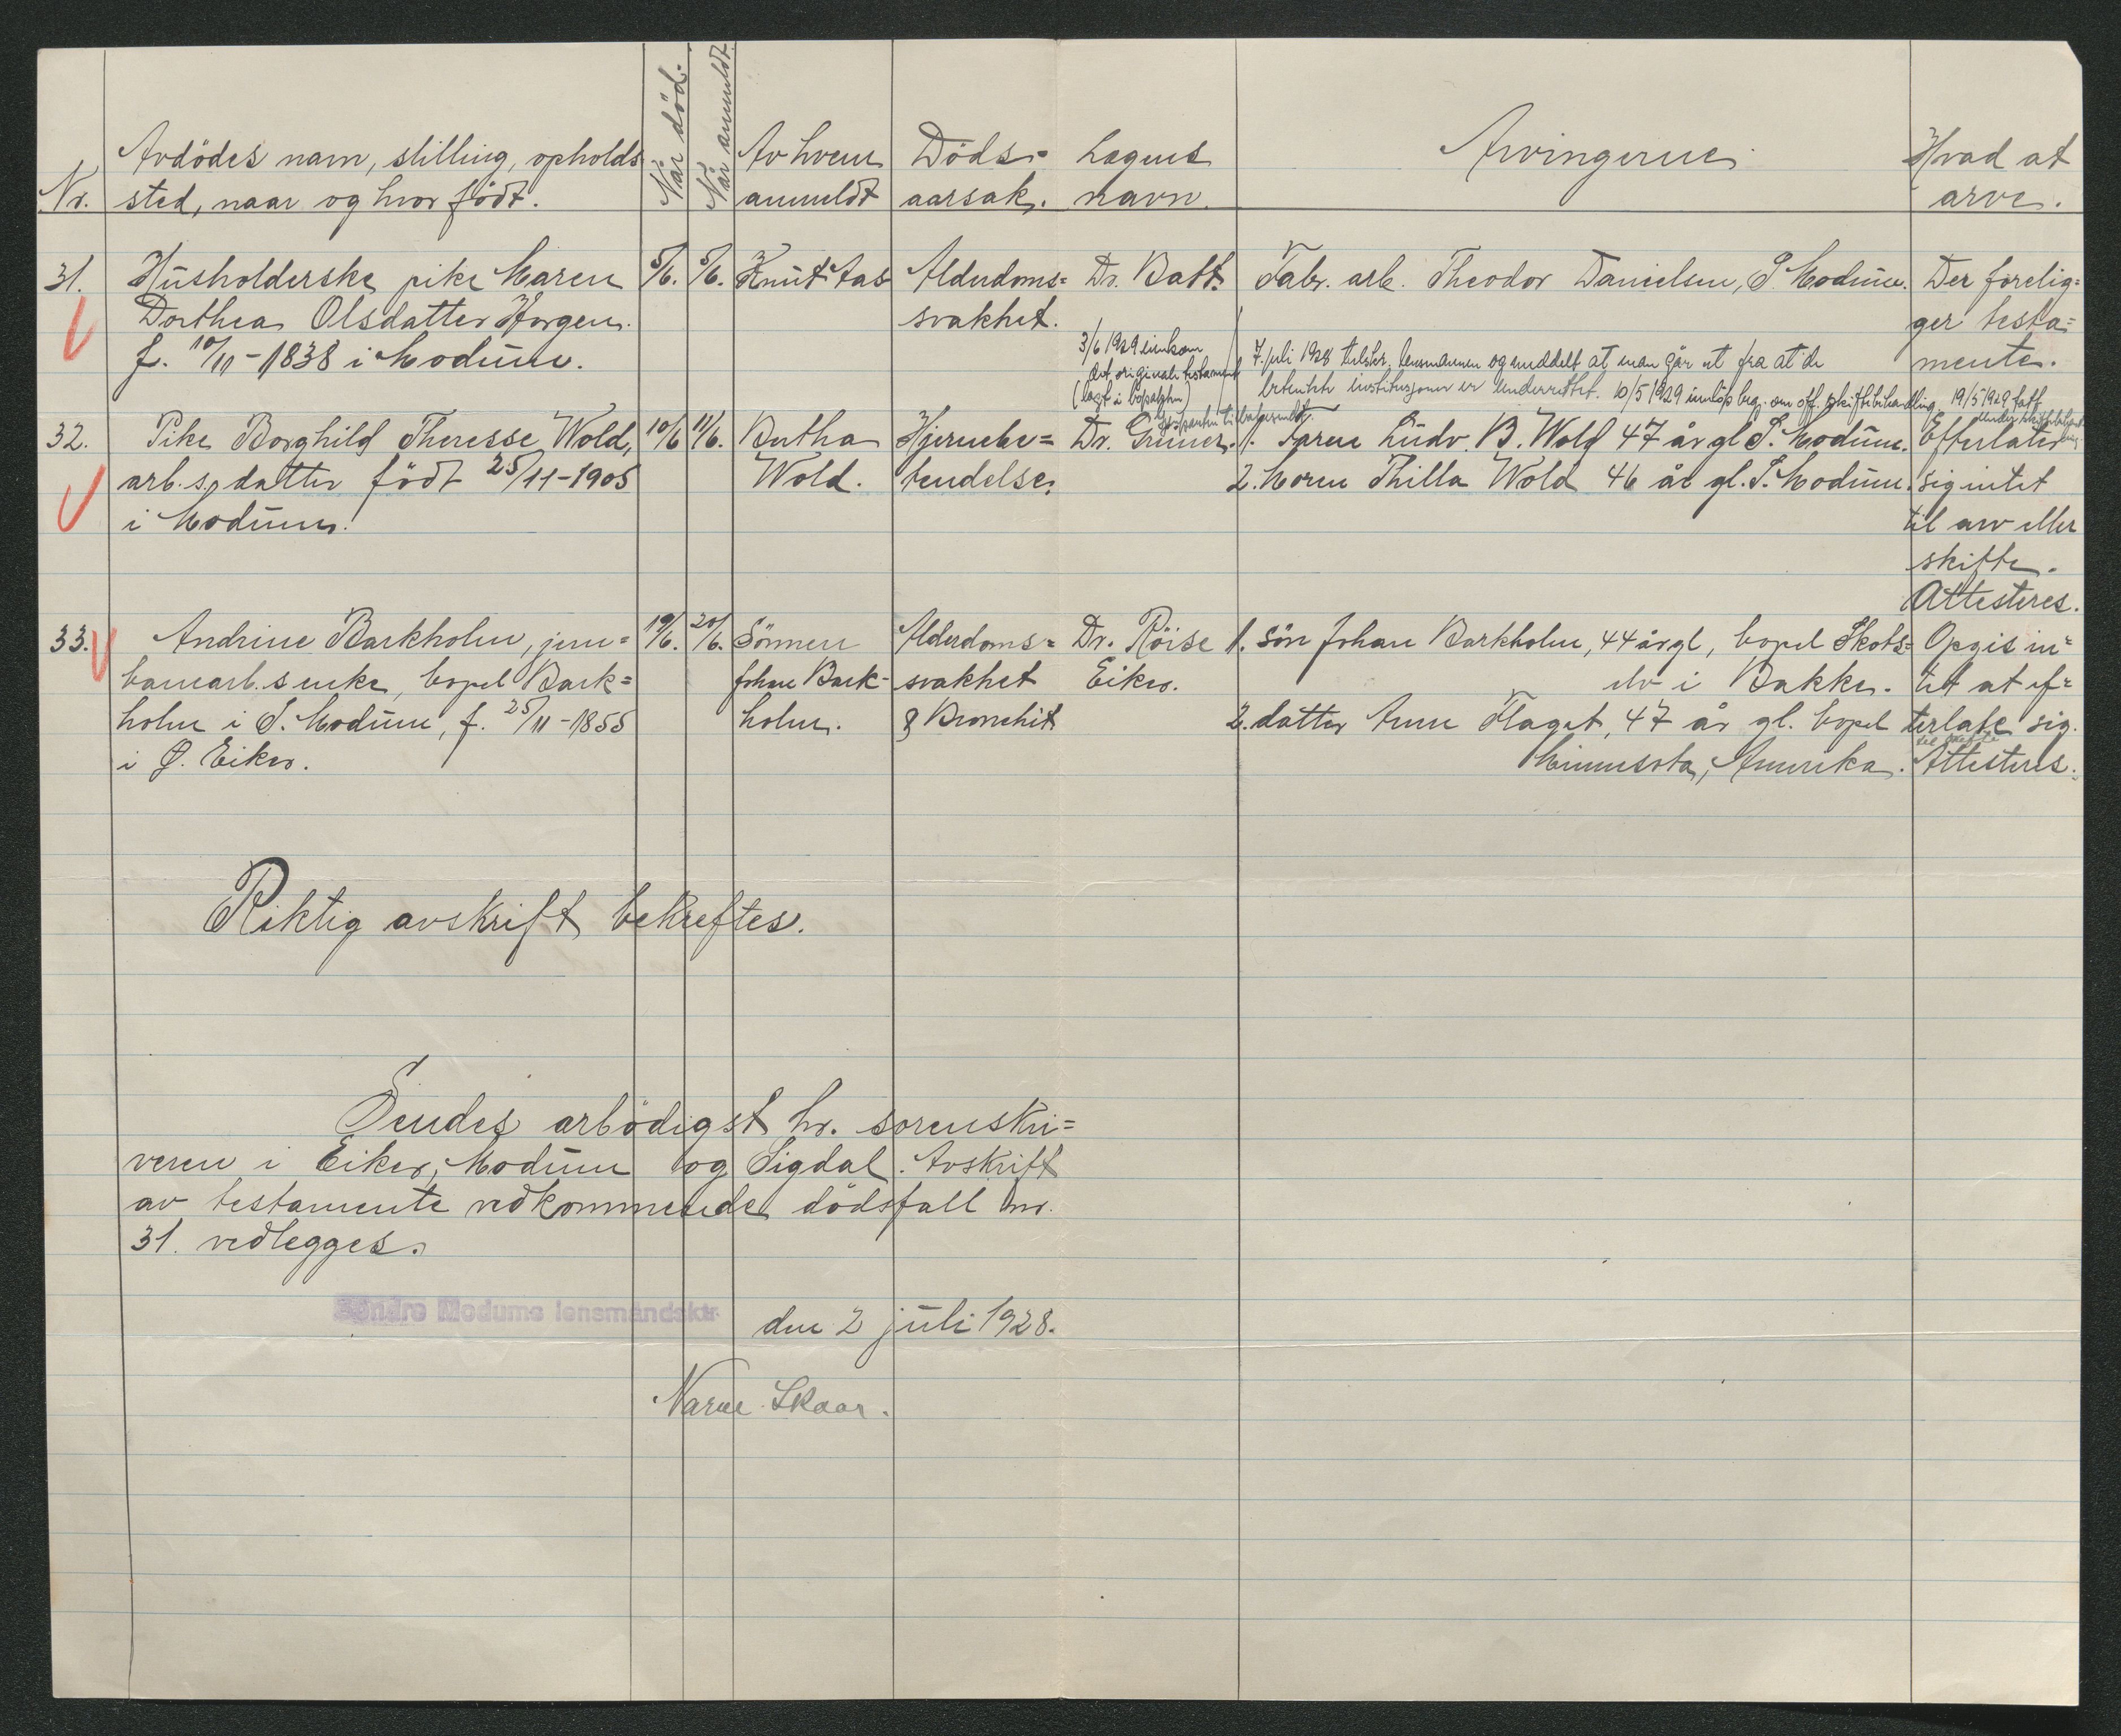 Nr.
Avdödes navn, stilling, opholds
sted, naar og hvor födt.
Når död.
Når anmeldt.
Av hvem
anmeldt
Döds-
aarsak.
Lægens
navn.
Arvingerne
Hvad at
arve.
31.
Husholderske, pike Maren
Dorthea Olsdatter Horgen.
f. 10/11-1838 i Modum.
5/6.
5/6.
Knut Aas
Alderdoms=
svakhet.
Dr. Batt.
Fabr. arb. Theodor Danielsen, S. Modum.
Der forelig=
ger testa=
mente.
3/6 1929 innkom
det originale testament
(lagt i bopakken)
7. juli 1928 tilskr. lensmannen og meddelt at man går ut fra at de
betenkte institusjoner er underrettet. 10/5 1929 innløp beg. om off. skiftebehandling, 19/5 1929 tatt
under skiftebehand-
ling.
32.
Pike Borghild Theresse Wold,
arb.s. datter födt 25/11-1905
i Modum.
10/6
11/6.
Bertha
Wold.
Hjernebe=
tendelse.
Dr. Grüner.
1. Faren Ludv. B. Wold 47 år gl S. Modum.
2. Moren Thilla Wold 46 år gl. S. Modum.
Efterlater
sig intet
til arv eller
skifte.
Attesteres.
33.
Andrine Barkholm, jern=
banearb.s enke, bopel Bark=
holm i S. Modum, f. 25/11-1855
i Ø. Eiker.
19/6.
20/6.
Sönnen
Johan Bark-
holm.
Alderdoms=
svakhet
& Bronchit
Dr. Röise
Eiker.
1. sön Johan Barkholm, 44 år gl, bopel Skots=
elv i Bakke.
2. datter Anne Flaget, 47 år gl. bopel
Minnesota, Amerika.
Opgis in=
tet at ef=
terlate sig
til skifte
Attesteres.
Riktig avskrift bekreftes.
Sendes arbödigst hr. sorenskri=
veren i Eiker, Modum og Sigdal. Avskrift
av testamente vedkommende dödsfall nr.
31. vedlegges.
Søndre Modums lensmandsktr.
den 2 juli 1928.
Narve Skaar.